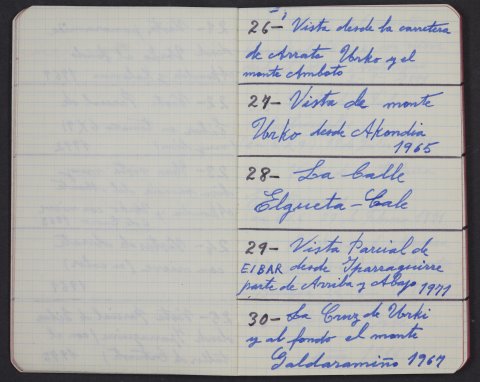 26- Vista desde la carretera
de Arrate Urko y el
monte Amboto
27- Vista de monte
Urko desde Akondia
1965
28- La Calle
Elgueta-Cale
29- Vista Parcial de
EIBAR desde Iparraguirre
parte de Arriba y Abajo 1971
30- La Cruz de Urki
y al fondo el monte
Galdaramiño 1967